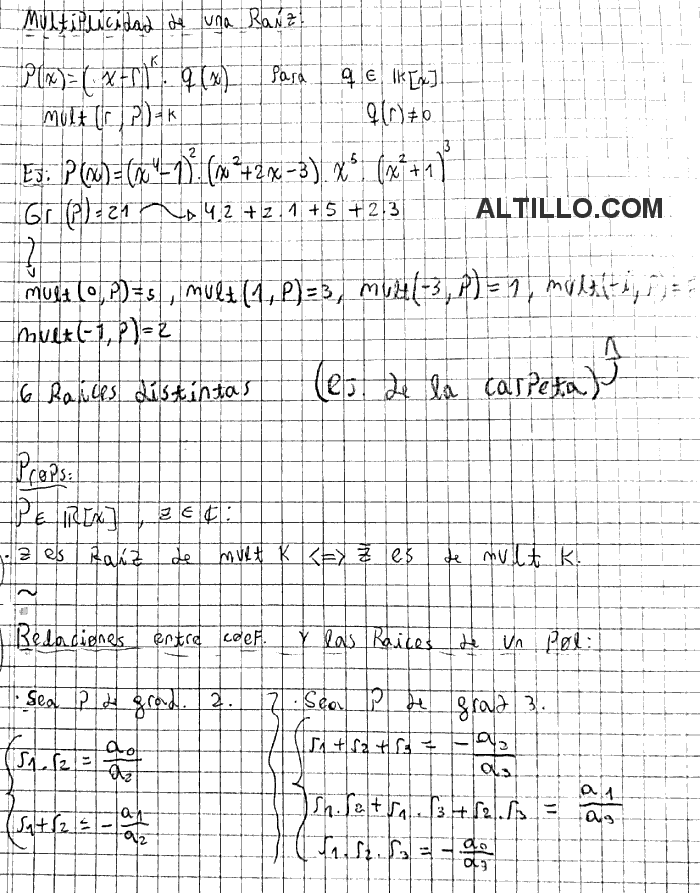 Multiplicidad de una Raíz:
P(x)=(x-r)^k . q(x) Para q ∈ K[x]
mult(r, P)=k q(r)≠0
Ej: P(x)=(x^4-1)^2.(x^2+2x-3).x^5.(x^2+1)^3
Gr(P)=21 → 4.2+2.1+5+2.3
ALTILLO.COM
mult(0,P)=5, mult(1,P)=3, mult(-3,P)=1, mult(-i,P)=
mult(-1,P)=2
6 Raíces distintas (ej. de la carpeta)
Props:
P∈ R[x], z∈ ₵:
· z es Raíz de mult K <=> z̄ es de mult K.
~
Relaciones entre coef. y las Raíces de un Pol:
· Sea P de grad. 2.
r1.r2 = a0/a2
r1+r2 = -a1/a2
· Sea P de grad 3.
r1+r2+r3 = -a2/a3
r1.r2+r1.r3+r2.r3 = a1/a3
r1.r2.r3 = -a0/a3